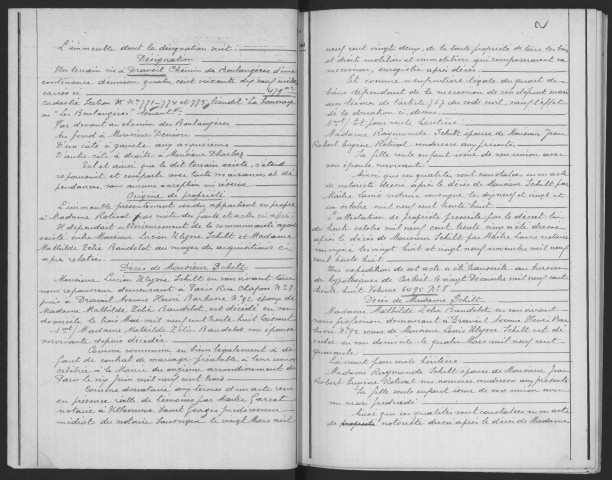 L'immeuble dont la désignation suit :
Désignation
Un terrain sis à Draveil Chemin de Boulangères d'une
contenance d'environ quatre cent soixante dix neuf mètres
carrés ci 479 m2
cadastré Section N° 771-774 et 775 lieudit "La Tauvraye
ou "Les Boulangères" tenant :
Par devant au chemin des Boulangères
Au fond à Monsieur
D'un côté à gauche aux acquéreurs
D'autre côté à droite à Monsieur
Tel et ainsi que le dit terrain existe, s'étend
se poursuit et comporte avec toutes aisances et dé-
pendances, sans aucune exception ni réserve
Origine de propriété
L'immeuble présentement vendu appartient en propre
à Madame Rotival par suite des faits et actes ci après :
Il dépendait antérieurement de la communauté ayant
existé entre Monsieur Lucien Ulysse Schilt et Madame
Mathilde Zélie Baudelot au moyen des acquisitions ci
après relatées.
Décès de Monsieur Schilt
Monsieur Lucien Ulysse Schilt en son vivant
demeurant à Paris Rue Chapon N° 22
puis à Draveil Avenue Henri Barbusse N° 92 époux de
Madame Mathilde Zélie Baudelot, est décédé en son
domicile le trois Mai mil neuf cent quarante huit laissant
1ent/ Madame Mathilde Zélie Baudelot son épouse
survivante depuis décédée
Comme commune en biens légalement à dé-
faut de contrat de mariage préalable à leur union
célébrée à la Mairie du onzième arrondissement de
Paris le six Juin mil neuf cent trois
Comme donataire aux termes d'un acte reçu
en présence réelle de témoins par Maître
notaire à Villeneuve Saint Georges prédécesseur
médiat du notaire soussigné le vingt Mars mil
2
neuf cent vingt deux, de la toute propriété de tous les biens
et droits mobiliers et immobiliers qui composeraient sa
succession, enregistré après décès.
Et comme usufruitière légale du quart des
biens dépendant de la succession de son défunt mari
aux termes de l'article 767 du code civil, sauf l'effet
de la donation ci dessus.
2ent/ Et pour seule héritière :
Madame Raymonde Schilt épouse de Monsieur Jean
Robert Eugène Rotival, venderesse aux présentes
Sa fille seule enfant issue de son union avec
son épouse survivante.
Ainsi que ces qualités sont constatées en un acte
de notoriété dressé après le décès de Monsieur Schilt par
Maître Lainé notaire soussigné le dix neuf et vingt et
un octobre mil neuf cent quarante huit
L'attestation de propriété prescrite par le décret loi
du huit octobre mil neuf cent trente cinq a été dressée
après le décès de Monsieur Schilt par Maître Lainé notaire
soussigné les vingt huit et vingt neuf novembre mil neuf
cent quarante huit
Une expédition de cet acte a été transcrite au bureau
des hypothèques de Corbeil le vingt Décembre mil neuf cent
quarante huit Volume 1495 N° 8
Décès de Madame Schilt
Madame Mathilde Zélie Baudelot en son vivant
sans profession demeurant à Draveil Avenue Henri Bar-
busse N° 92 veuve de Monsieur Lucien Ulysse Schilt est dé-
cédée en son domicile le quatre Mars mil neuf cent
cinquante
Laissant pour seule héritière
Madame Raymonde Schilt épouse de Monsieur Jean
Robert Eugène Rotival sus nommée venderesse aux présentes
Sa fille seule enfant issue de son union avec
son mari prédécédé
Ainsi que ces qualités sont constatées en un acte
de notoriété dressé après le décès de Madame